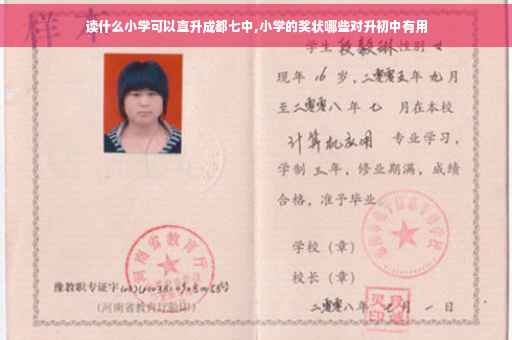 读什么小学可以直升成都七中,小学的奖状哪些对升初中有用
样本
学生段毅琳性别女
现年16岁,二零零五年九月
至二零零八年七月在本校
计算机应用专业学习,
学制三年,修业期满,成绩
合格,准予毕业
学校(章)
校长(章)
二零零八年七月一日
河南省教育厅
豫教职专证字
(河南省教育厅验印)